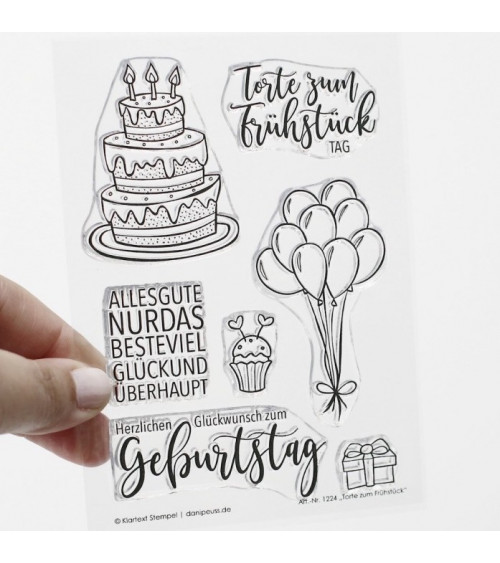 Torte zum
Frühstück
TAG
ALLESGUTE
NURDAS
BESTEVIEL
GLÜCKUND
ÜBERHAUPT
Herzlichen Glückwunsch zum
Geburtstag
Art.-Nr. 1224 „Torte zum Frühstück“
© Klartext Stempel | danipeuss.de